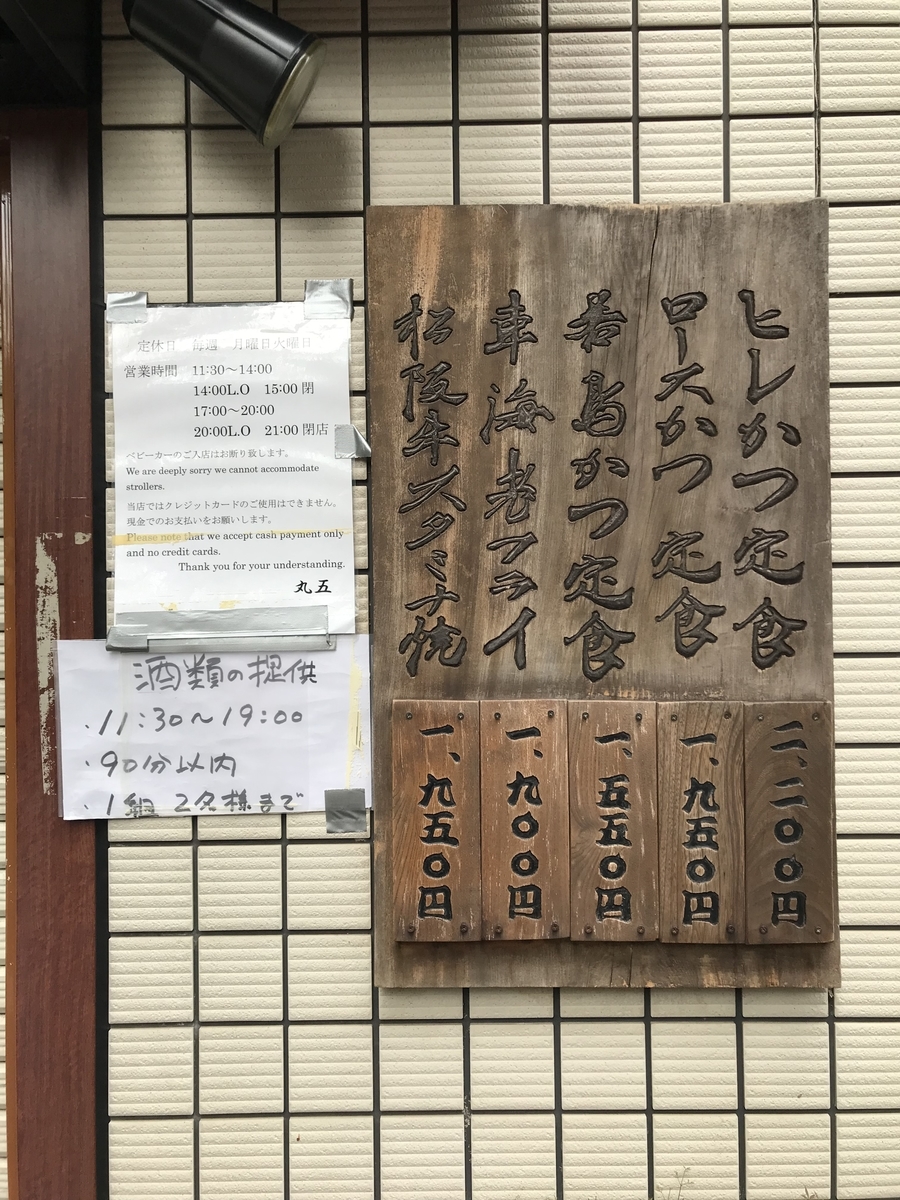 ヒレかつ定食
二、二〇〇円
ロースかつ定食
一、九五〇円
若鳥かつ定食
一、五五〇円
車海老フライ
一、九〇〇円
松阪牛スタミナ焼
一、九五〇円
定休日 毎週 月曜日火曜日
営業時間 11:30〜14:00
14:00L.O 15:00閉
17:00〜20:00
20:00L.O 21:00閉店
ベビーカーのご入店はお断り致します。
We are deeply sorry we cannot accommodate
strollers.
当店ではクレジットカードのご使用はできません。
現金でのお支払いをお願いします。
Please note that we accept cash payment only
and no credit cards.
Thank you for your understanding.
丸五
酒類の提供
・11:30〜19:00
・90分以内
・1組 2名様まで